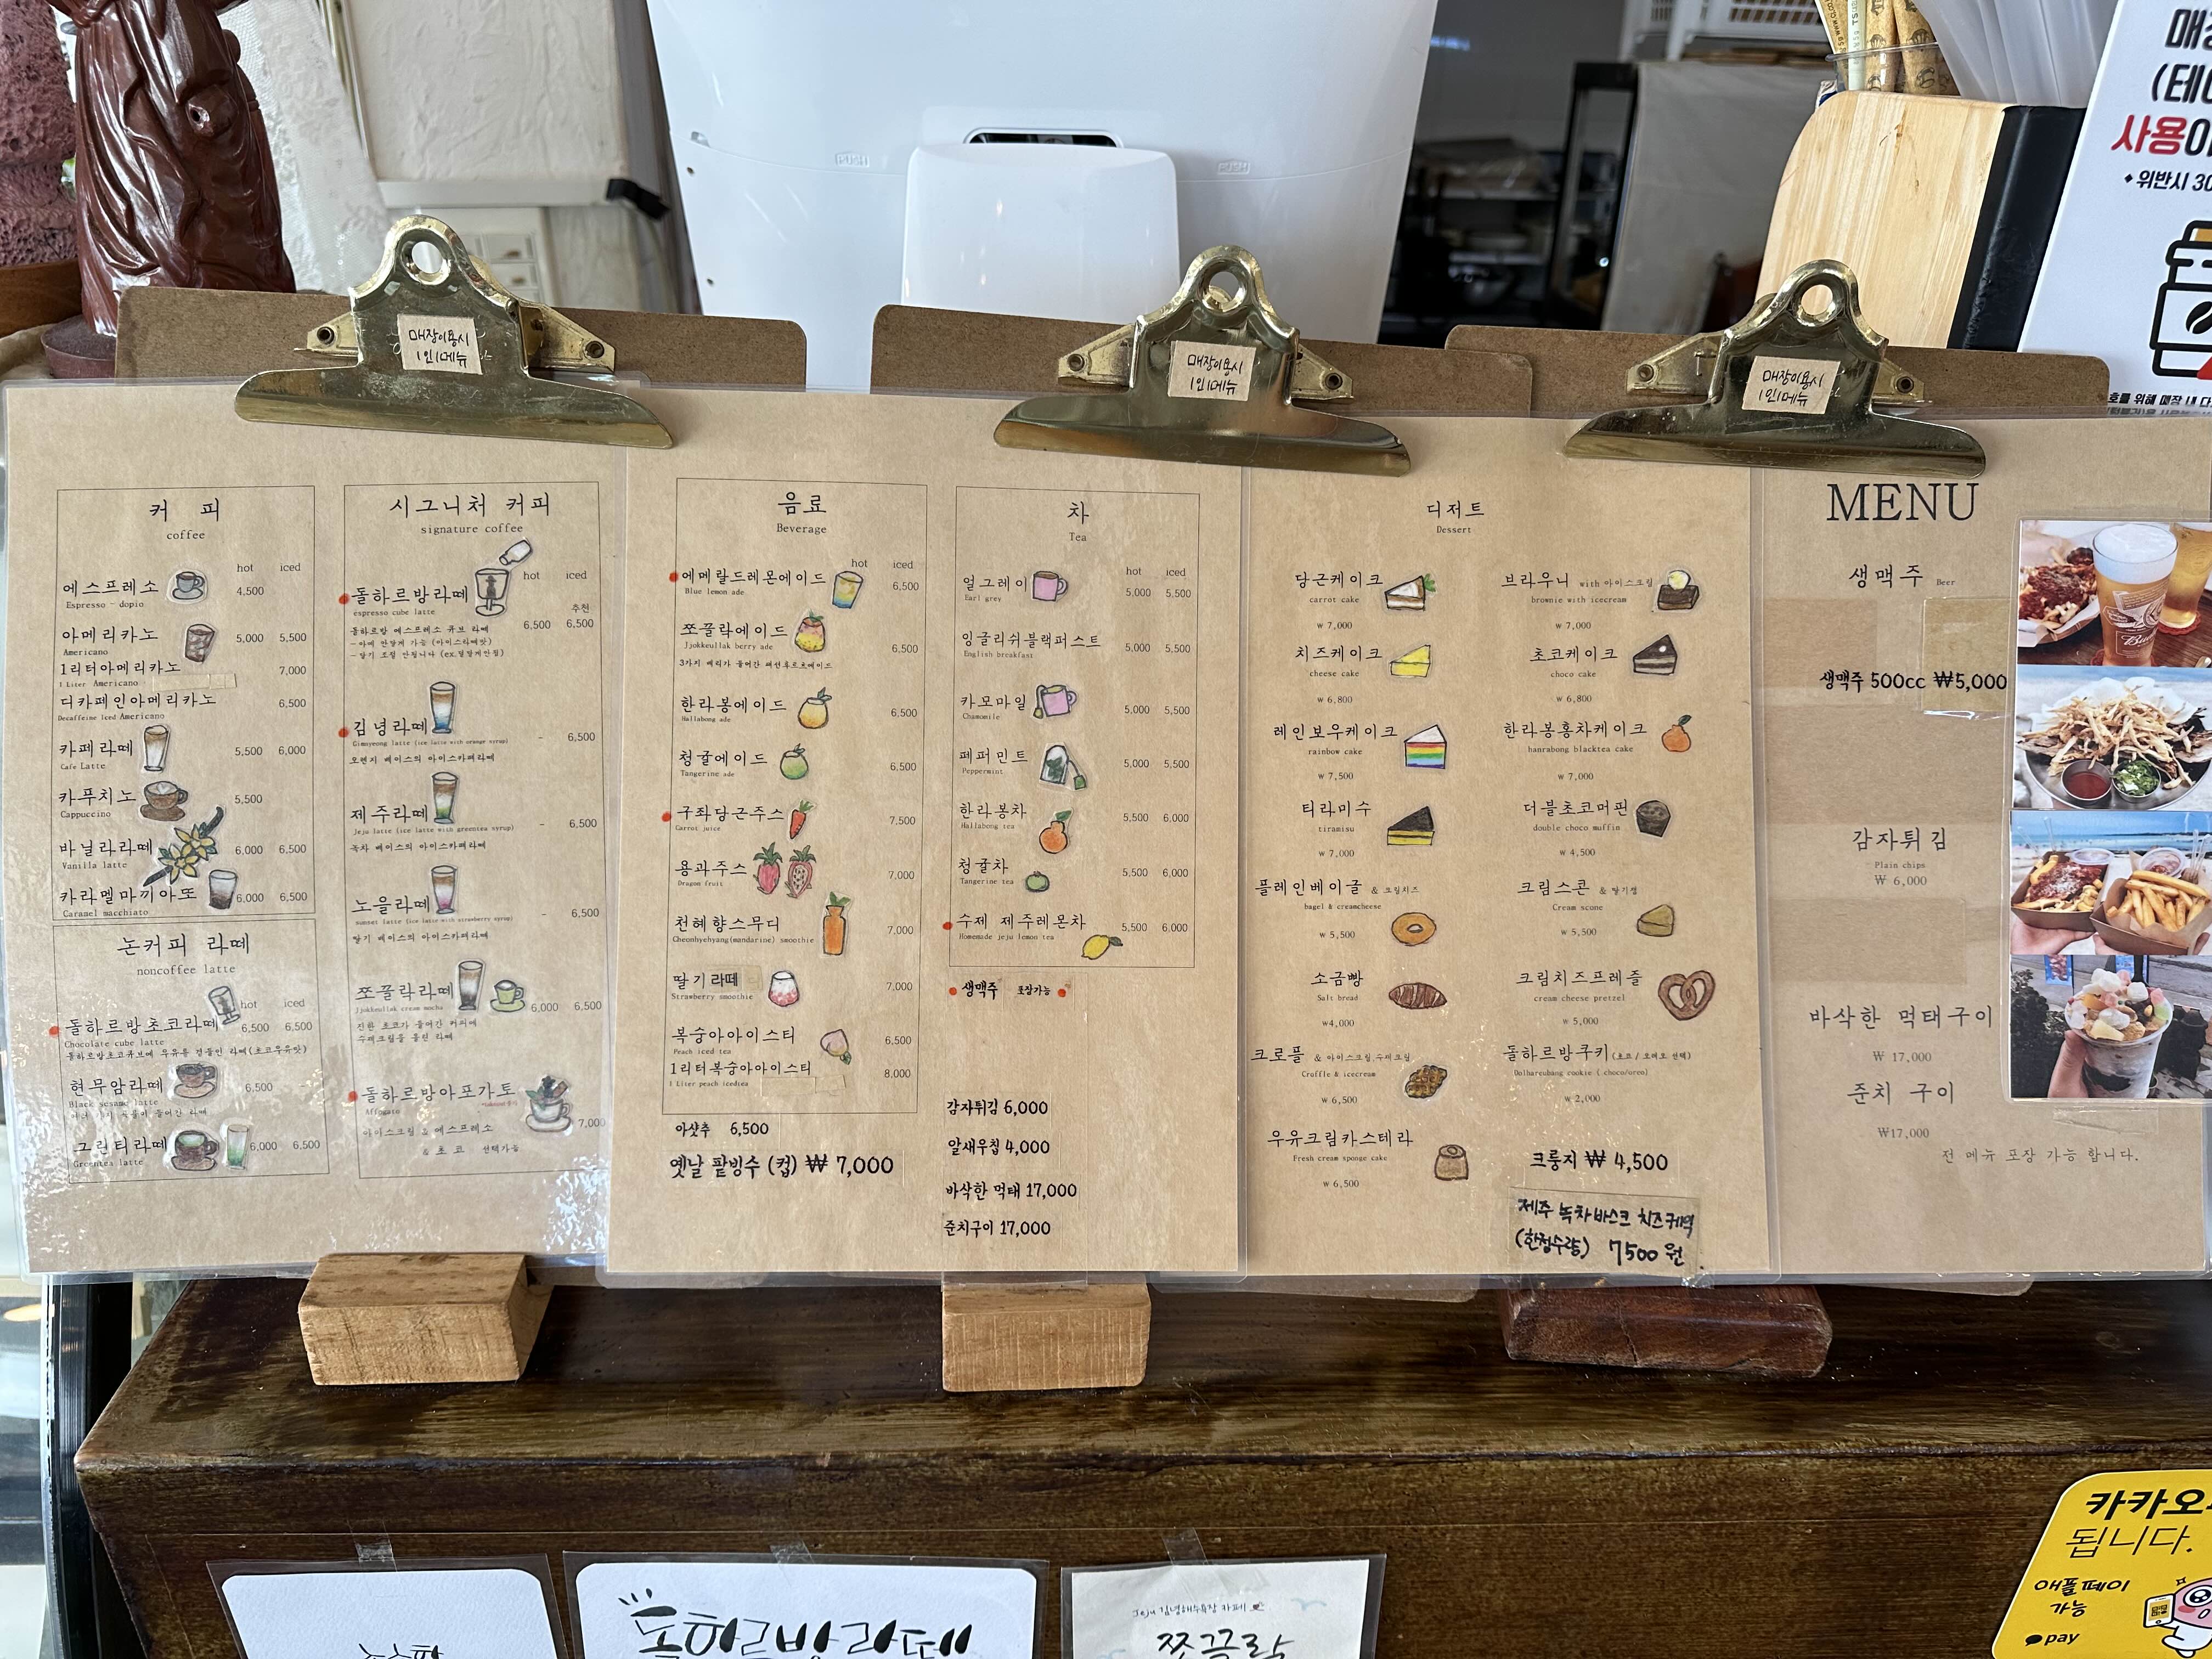 매장이용시
1인1메뉴
매장이용시
1인1메뉴
매장이용시
1인1메뉴
PUSH
PUSH
사용
위반시 30
커 피
coffee
hot iced
에스프레소 4,500
Espresso - dopio
아메리카노 5,000 5,500
Americano
1리터아메리카노 7,000
1 Liter Americano
디카페인아메리카노 6,500
Decaffeine Iced Americano
카페라떼 5,500 6,000
Cafe Latte
카푸치노 5,500
Cappuccino
바닐라라떼 6,000 6,500
Vanilla latte
카라멜마끼아또 6,000 6,500
Caramel macchiato
논커피 라떼
noncoffee latte
hot iced
돌하르방초코라떼 6,500 6,500
Chocolate cube latte
돌하르방초코큐브에 우유를 곁들인 라떼(초코우유맛)
현무암라떼 6,500 -
Black sesame latte
그린티라떼 6,000 6,500
Greentea latte
시그니처 커피
signature coffee
hot iced
추천
돌하르방라떼 6,500 6,500
espresso cube latte
돌하르방 에스프레소 큐브 라떼
김녕라떼 - 6,500
Gimnyeong latte (ice latte with orange syrup)
오렌지 베이스의 아이스카페라떼
제주라떼 - 6,500
Jeju latte (ice latte with greentea syrup)
녹차 베이스의 아이스카페라떼
노을라떼 - 6,500
sunset latte (ice latte with strawberry syrup)
딸기 베이스의 아이스카페라떼
쪼끌락라떼 6,000 6,500
Jjokkeullak cream mocha
진한 초코가 들어간 커피에
수제크림을 올린 라떼
돌하르방아포가토 7,000
Affogato
아이스크림 & 에스프레소
& 초코 선택가능
음료
Beverage
hot iced
에메랄드레몬에이드 6,500
Blue lemon ade
쪼끌락에이드 6,500
Jjokkeullak berry ade
한라봉에이드 6,500
Hallabong ade
청귤에이드 6,500
Tangerine ade
구좌당근주스 7,500
Carrot juice
용과주스 7,000
Dragon fruit
천혜향스무디 7,000
Cheonhyehyang(mandarine) smoothie
딸기라떼 7,000
Strawberry smoothie
복숭아아이스티 6,500
Peach iced tea
1리터복숭아아이스티 8,000
1 Liter peach icedtea
아샷추 6,500
옛날 팥빙수 (컵) ₩ 7,000
차
Tea
hot iced
얼그레이 5,000 5,500
Earl grey
잉글리쉬블랙퍼스트 5,000 5,500
English breakfast
카모마일 5,000 5,500
Chamomile
페퍼민트 5,000 5,500
Peppermint
한라봉차 5,500 6,000
Hallabong tea
청귤차 5,500 6,000
Tangerine tea
수제 제주레몬차 5,500 6,000
Homemade jeju lemon tea
생맥주 포장가능
감자튀김 6,000
알새우칩 4,000
바삭한 먹태 17,000
준치구이 17,000
디저트
Dessert
당근케이크
carrot cake
₩ 7,000
치즈케이크
cheese cake
₩ 6,800
레인보우케이크
rainbow cake
₩ 7,500
티라미수
tiramisu
₩ 7,000
플레인베이글 & 크림치즈
bagel & creamcheese
₩ 5,500
소금빵
Salt bread
₩4,000
크로플 & 아이스크림,수제크림
Croffle & icecream
₩ 6,500
우유크림카스테라
Fresh cream sponge cake
₩ 6,500
브라우니 with 아이스크림
brownie with icecream
₩ 7,000
초코케이크
choco cake
₩ 6,800
한라봉홍차케이크
hanrabong blacktea cake
₩ 7,000
더블초코머핀
double choco muffin
₩ 4,500
크림스콘 & 딸기잼
Cream scone
₩ 5,500
크림치즈프레즐
cream cheese pretzel
₩ 5,000
돌하르방쿠키 (초코 / 오레오 선택)
Dolhareubang cookie ( choco/oreo)
₩ 2,000
크룽지 ₩ 4,500
제주 녹차바스크 치즈케익
(한정수량) 7500 원
MENU
생맥주 Beer
생맥주 500cc ₩5,000
감자튀김
Plain chips
₩ 6,000
바삭한 먹태구이
₩ 17,000
준치 구이
₩17,000
전 메뉴 포장 가능 합니다.
돌하르방라떼
Jeju 김녕해수욕장 카페
쪼끌락
카카오
됩니다.
애플페이
가능
pay